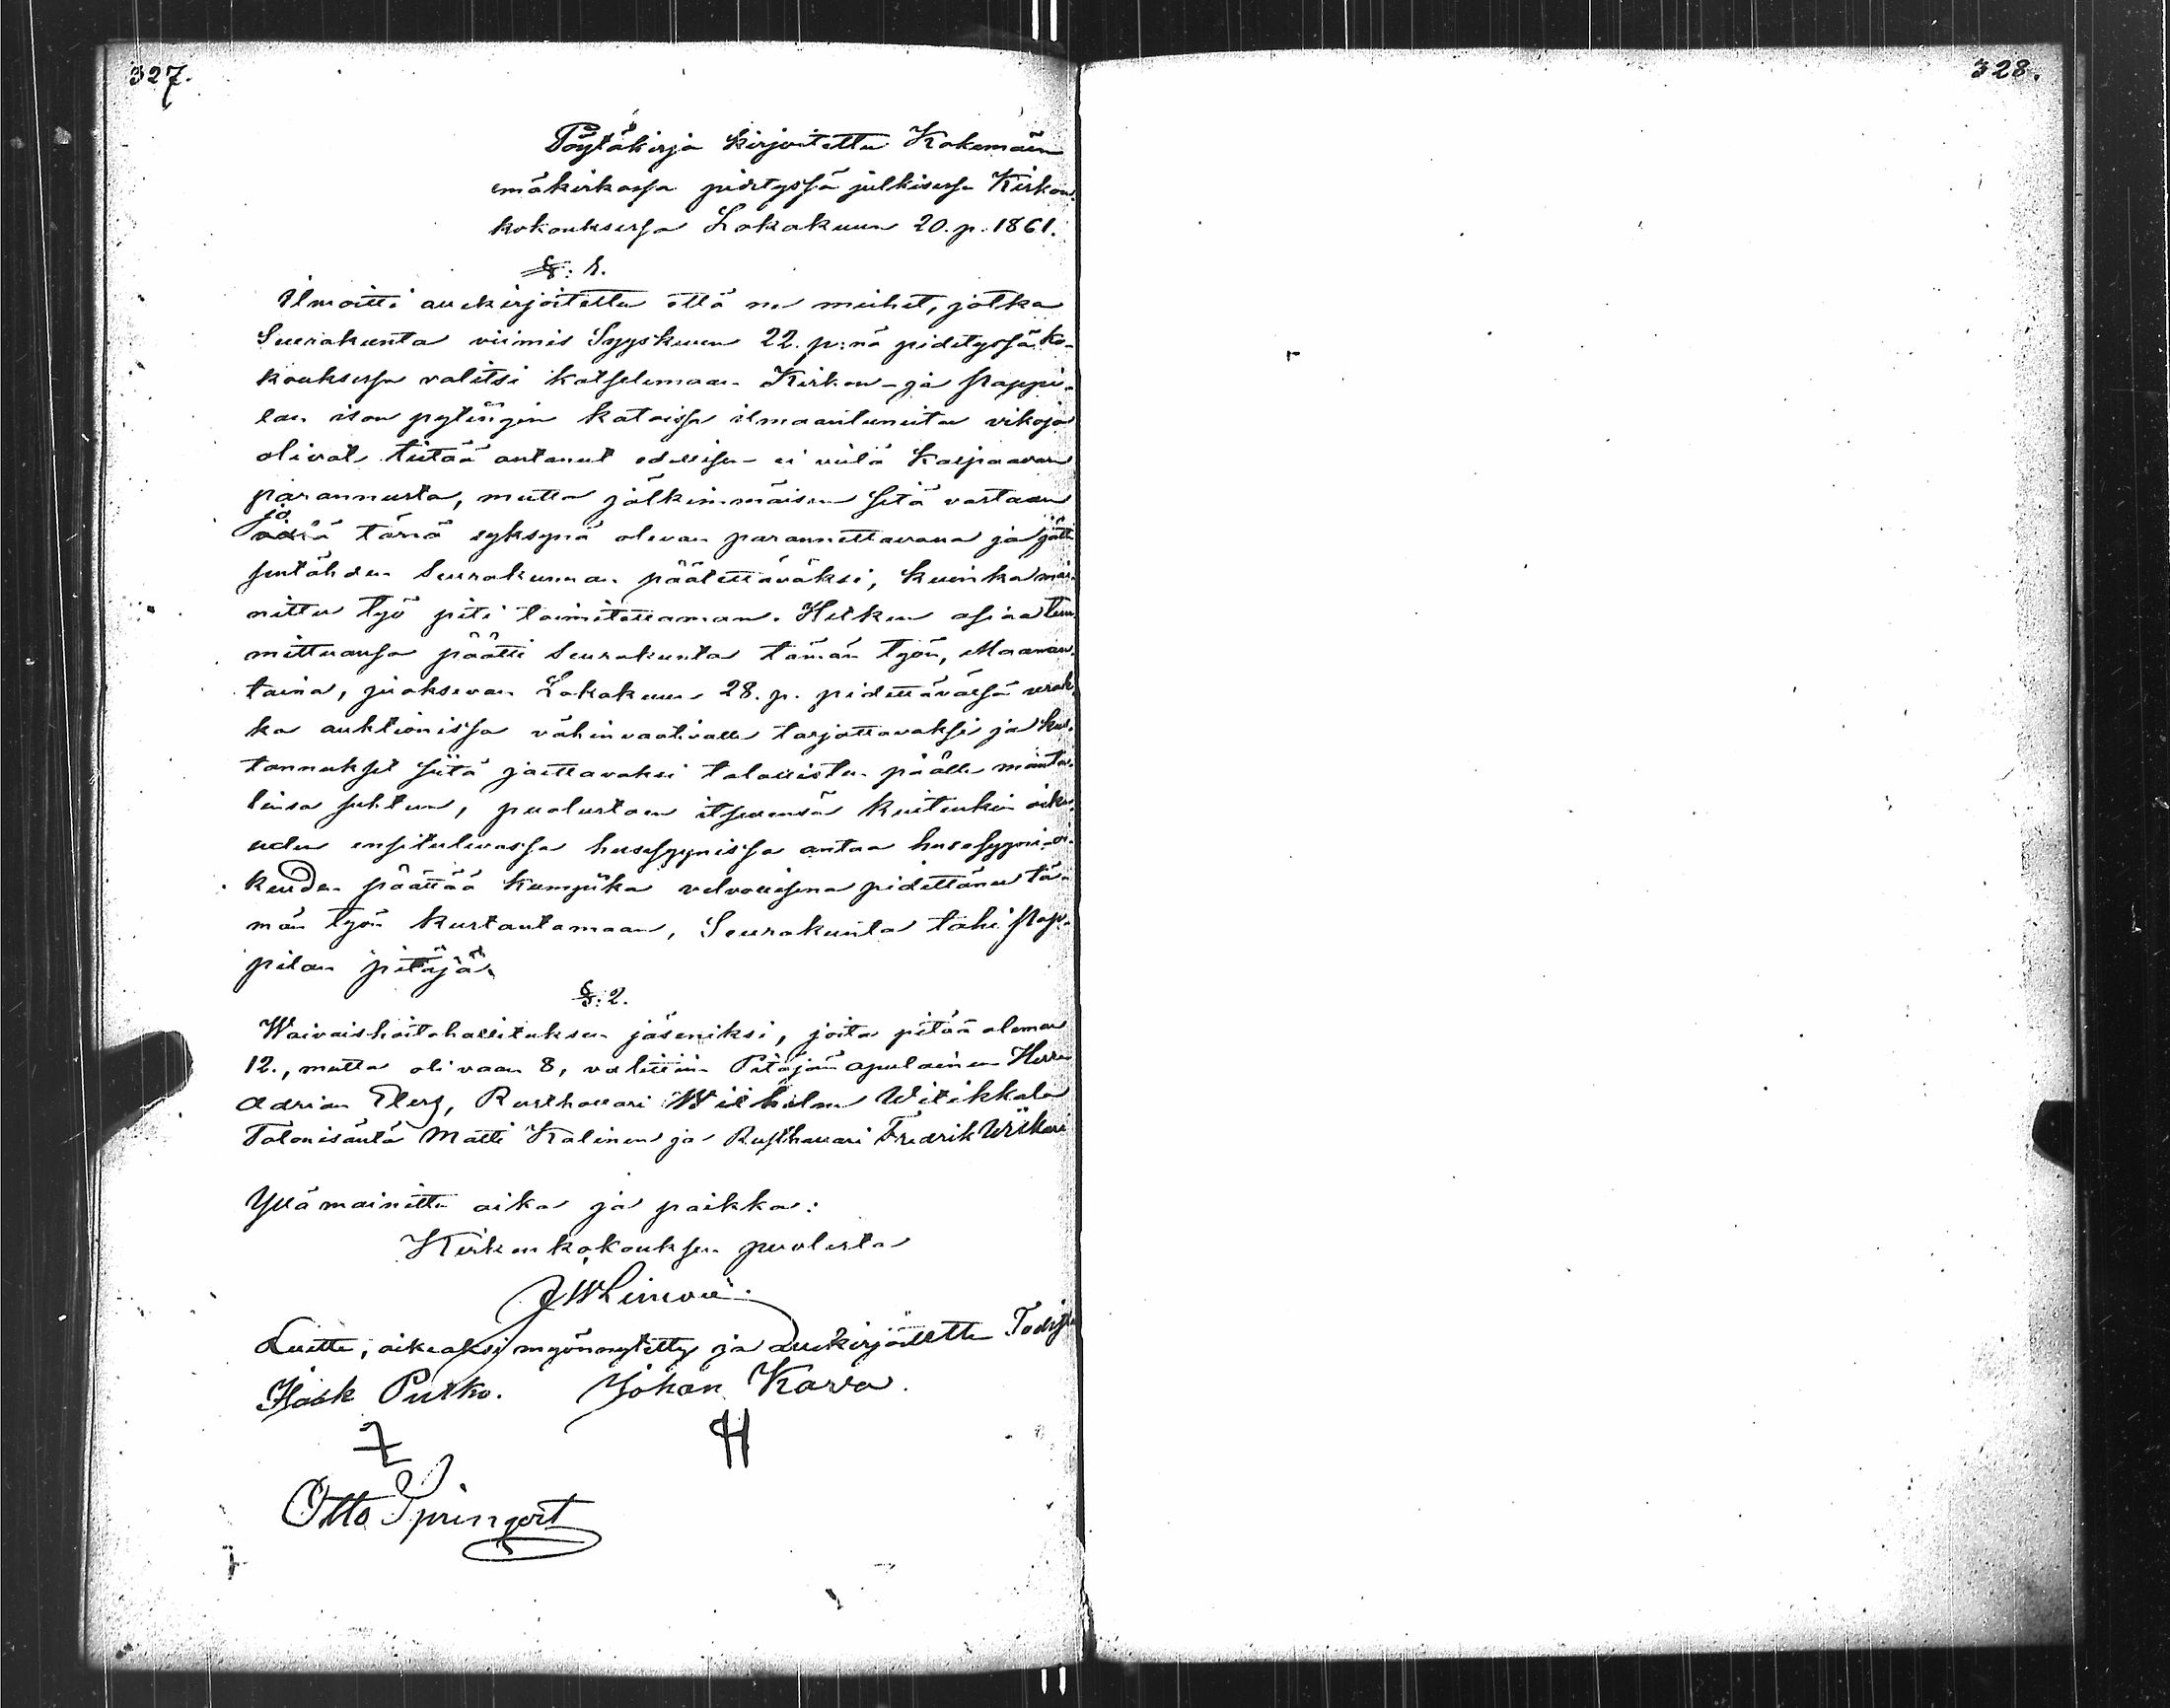 327.
328.
Pöytäkirja kirjoitettu Kokemäen
emäkirkossa pidetyssä julkisessa Kirkon
kokouksessa Lokakuun 20. p. 1861.
§: 1.
Ilmoitti allekirjoitettu että ne miehet, jotka
Seurakunta viimis Syyskuun 22. p:nä pidetyssä Ko-
kouksessa valitsi katselemaan Kirkon- ja Pappi-
lan ison pytingin katoissa ilmaantuneita vikoja
olivat tietää antanut edellisen ei vielä kaipaavan
parannusta, mutta jälkimmäisen sitä vastaan
jo tänä syksynä olevan parannettavana ja jätti
sentähden Seurakunnan päätettäväksi, kuinka mai-
nittu työ piti toimitettaman. Hetken asiaa tuu-
mittuansa päätti Seurakunta tämän työn, Maanan-
taina, juoksevan Lokakuun 28. p. pidettävässä urak-
ka auktionissa vähinvaativalle tarjottavaksi ja kus-
tannukset siitä jaettavaksi talollisten päälle mantta-
linsa suhteen, puolustaen itsellensä kuitenkin oike-
uden ensitulevassa huussyynissä antaa huussyyni-oi-
keuden päättää kumpika velvollisena pidettänee tä-
män työn kustantamaan, Seurakunta tahi Pap-
pilan pitäjä.
§: 2.
Waivaishoitohallituksen jäseniksi, joita pitää oleman
12., mutta oli vaan 8, valittiin Pitäjän apulainen Herra
Adrian Elers, Rusthollari Wilhelm Witikkala
Talonisäntä Matti Kalinen ja Rusthollari Fredrik Wiikari
Yllämainittu aika ja paikka:
Kirkonkokouksen puolesta
J W Limon
Luettu, oikeaksi myönnytetty ja allekirjoitettu Todista
Isaak Putko. Johan Karva.
Otto Springert